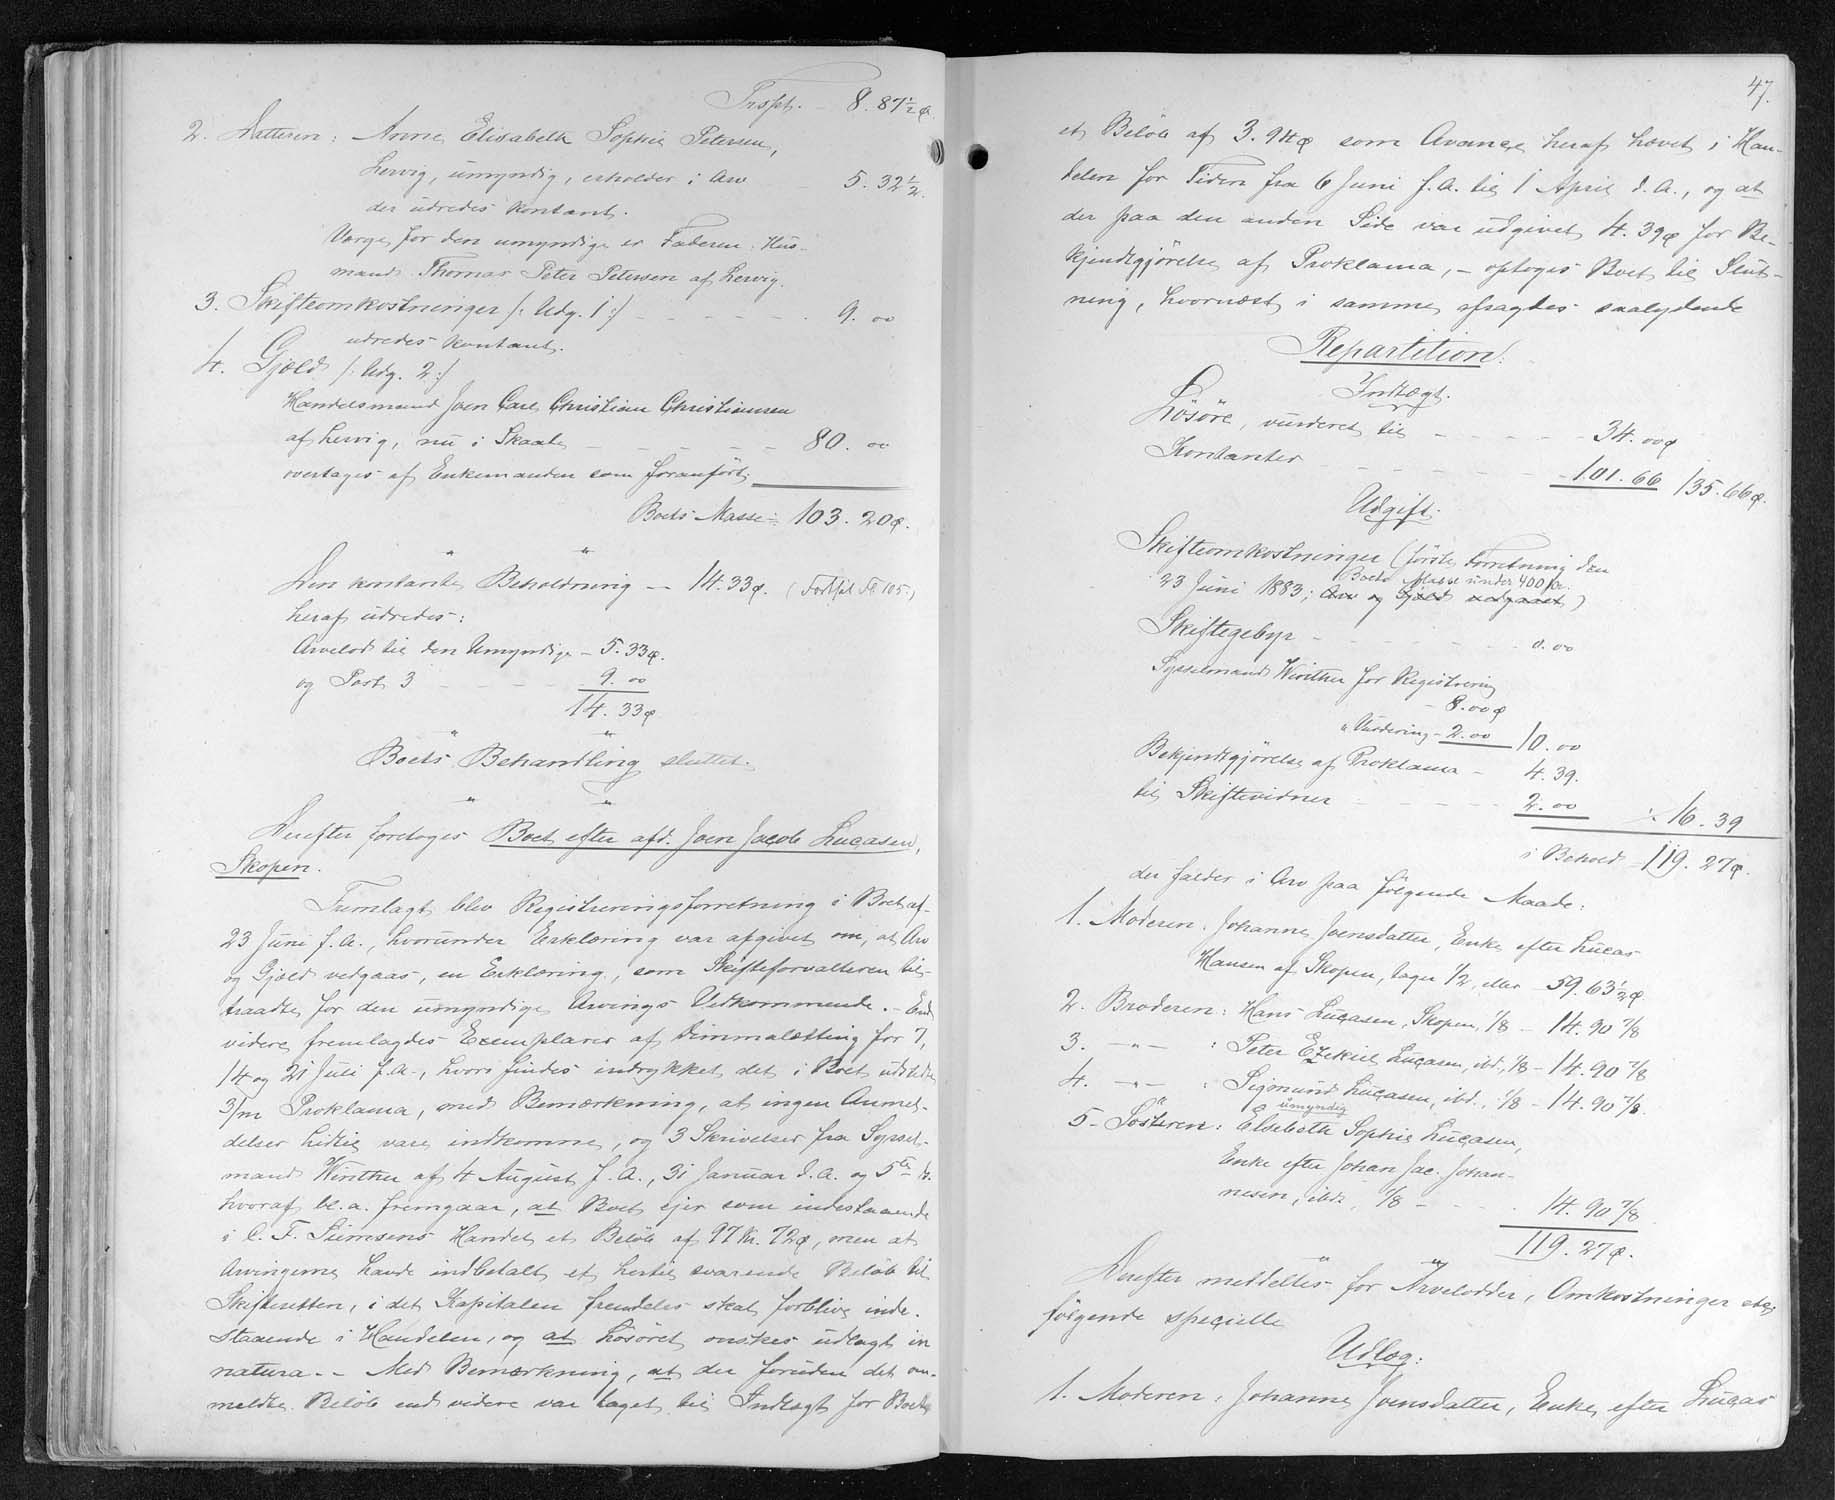 Trspt. - 8. 87½ø
2. Datteren: Anne Elisabeth Sophie Petersen,
Lervig, umyndig, erholder i Arv - 5. 32½
der udredes kontant.
Værge for den umyndige er Faderen: Hus-
mand Thomas Peter Petersen af Lervig.
3. Skifteomkostninger /: Udg. 1 :/ - - - - - 9. 00
udredes kontant.
4. Gjæld /: Udg. 2 :/
Handelsmand Joen Carl Christian Christiansen
af Lervig, nu i Skaale - - - - 80. 00
overtages af Enkemanden som foranført.
Boets Masse: 103. 20ø.
" "
Den kontante Beholdning - 14. 33ø.
heraf udredes:
Arvelod til den Umyndige - 5. 33ø.
og Post 3 - - - - 9. 00
14. 33ø
" "
Boets Behandling sluttet.
" "
Derefter foretoges Boet efter afd. Joen Jacob Lucasen,
Skopen.
Fremlagt blev Registreringsforretning i Boet af
23 Juni f. A., hvorunder Erklæring var afgivet om, at Arv
og Gjæld vedgaas, en Erklæring, som Skifteforvalteren til-
traadte for den umyndige Arvings Vedkommende. - End
videre fremlagdes Exemplarer af Dimmalætting for 7,
14 og 21 Juli f. A., hvori findes indrykket det i Boet udstedte
3/m Proklama, med Bemærkning, at ingen Anmel-
delser hidtil vare indkomne, og 3 Skrivelser fra Syssel-
mand Winther af 4 August f. A., 31 Januar d. A. og 5te
hvoraf bl. a. fremgaar, at Boet ejer som indestaaende
i C. F. Siemsens Handel et Beløb af 97 Kr. 72ø, men at
Arvingerne havde indbetalt et hertil svarende Beløb til
Skifteretten, i det Kapitalen fremdeles skal forblive inde-
staaende i Handelen, og at Løsøret ønskes udlagt in
natura. - Med Bemærkning, at der foruden det om-
meldte Beløb end videre var taget til Indtægt for Boet
47.
et Beløb af 3. 94ø som Avance heraf hævet i Han-
delen for Tiden fra 6 Juni f. A. til 1 April d. A., og at
der paa den anden Side var udgivet 4. 39ø for Be-
kjendtgjørelse af Proklama, - optoges Boet til Slut-
ning, hvornæst i samme afsagdes saalydende
Repartition:
Indtægt.
Løsøre, vurderet til - - - - - 34. 00ø
Kontanter - - - - - - - 101. 66 135. 66ø.
Udgift.
Skifteomkostninger (første Forretning den
Boets Masse under 400 Kr.
23 Juni 1883; Arv og Gjæld vedgaaet)
Skiftegebyr - - - - - - 0. 00
Sysselmand Winther for Registrering
- 8. 00ø
" Vurdering - 2. 00 10. 00
Bekjendtgjørelse af Proklama - 4. 39.
til Skiftevidner - - - - - 2. 00 16. 39
i Behold - 119. 27ø.
der falder i Arv paa følgende Maade:
1. Moderen: Johanne Joensdatter, Enke efter Lucas
Hansen af Skopen, tager 1/2, eller 59. 63½ø
2. Broderen: Hans Lucasen, Skopen, 1/8 - 14. 90 7/8
3. -"- : Peter Ezekiel Lucasen, ibd., 1/8 - 14. 90 7/8
4. -"- : Sigmund Lucasen, ibd., 1/8 - 14. 90 7/8
umyndig
5. Søsteren: Elsebeth Sophie Lucasen,
Enke efter Johan Jac. Johan-
nesen, ibd., 1/8 - - - 14. 90 7/8
119. 27ø.
" "
Derefter meddeltes for Arvelodder, Omkostninger etc.
følgende specielle
Udlæg:
1. Moderen: Johanne Joensdatter, Enke efter Lucas